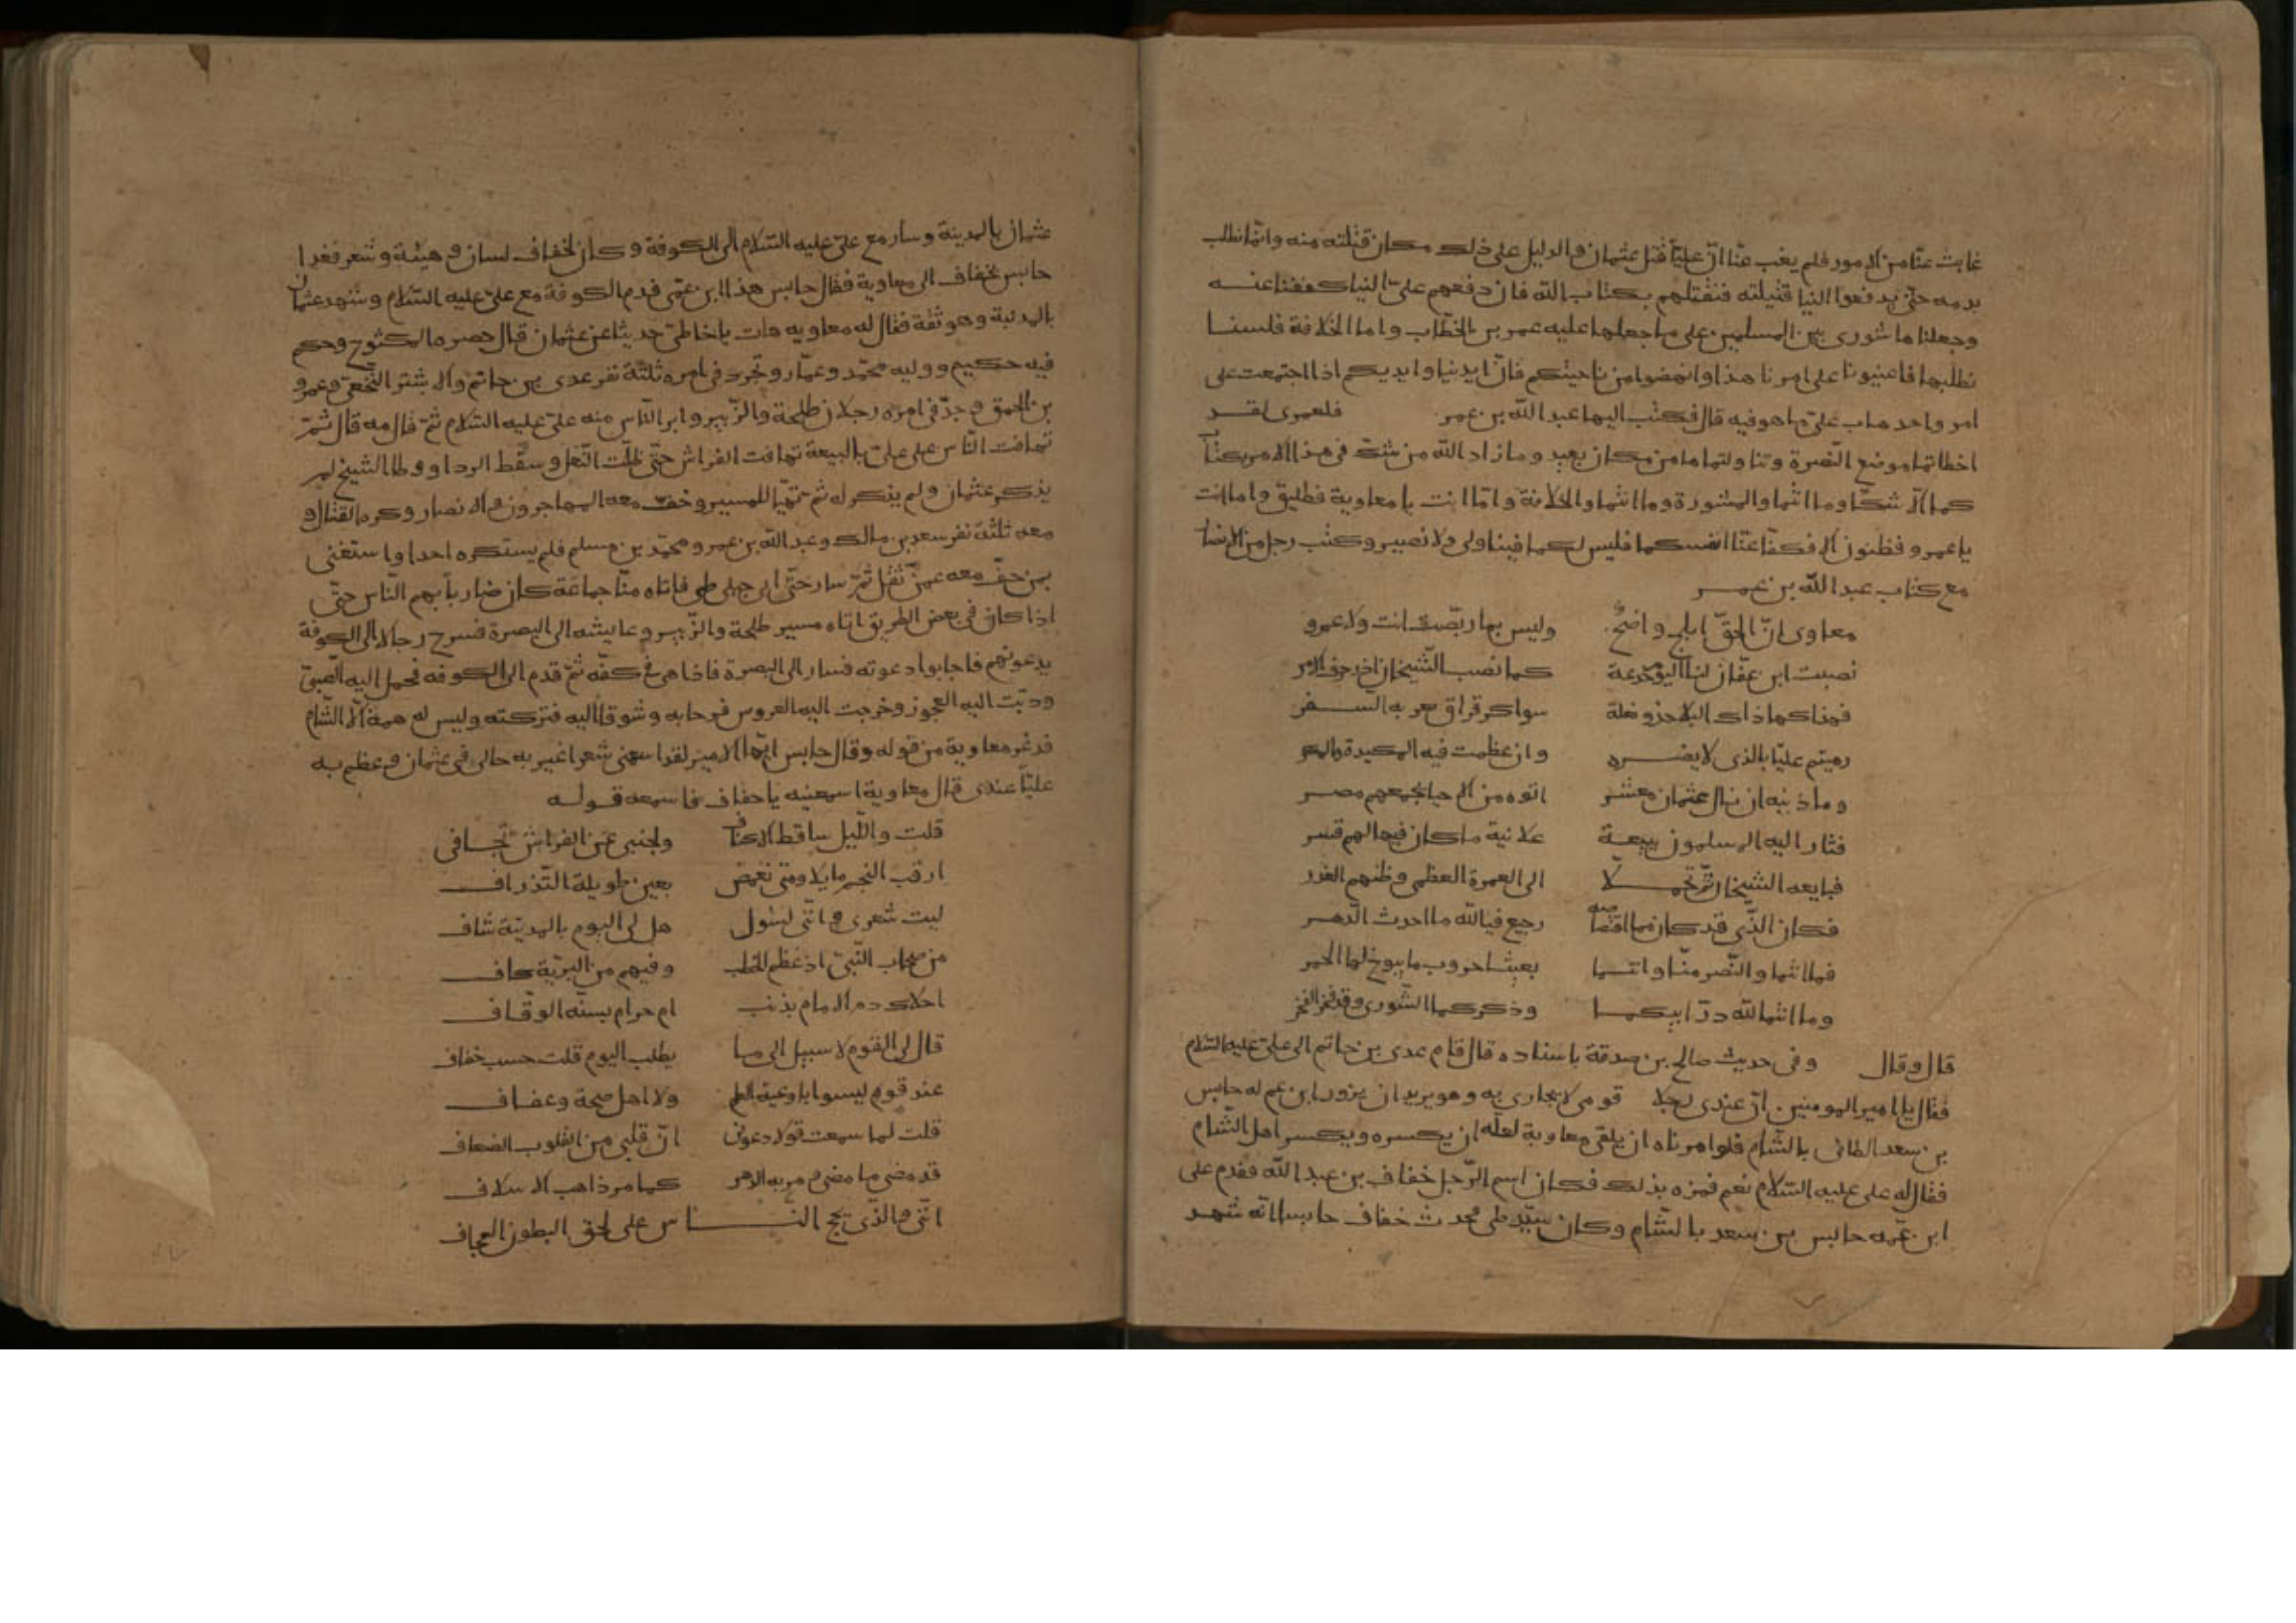 غابت عنّا من الامور فلم يغب عنّا انّ عليّا قتل عثمان والدليل على ذلك مكان قتلته منه وانّما نطلب
بدمه حتّى يدفعوا الينا قتيلته فنقتلهم بكتاب الله فان دفعهم علىّ الينا كففنا عنه
وجعلناها شورى بين المسلمين على ما جعلها عليه عمر بن الخطّاب واما الخلافة فلسنا
نطلبها فاعينونا على امرنا هذا وانهضوا من ناحيتكم فانّ ايدينا وايديكم اذا اجتمعت على
امر واحد هاب علىّ ما هو فيه قال فكتب اليها عبد الله بن عمر فلعمرى لقد
اخطاتما موضع النّصرة وتناولتماها من مكان بعيد وما زاد الله من شكّ فى هذا الامر بكتاب
كما الّا شكّا وما انتما والمشورة وما انتما والخلافة وامّا انت يا معاوية فطليق واما انت
يا عمرو فظنون الا فكفّا عنّا انفسكما فليس لكما فينا ولى ولا نصير وكتب رجل من الانصار
مع كتاب عبد الله بن عمر
معاوى انّ الحقّ ابلج واضح وليس بما ربّصت انت ولا عمرو
نصبت ابن عفّان لنا اليوم خدعة كما نصب الشّيخان اذ زخرف الامر
فهذا كهذاك البلا حذو نعلة سواء كرقراق يعر به السفر
رميتم عليّا بالذى لا يضره وان عظمت فيه المكيدة والمكر
وما ذنبه ان نال عثمان معشر اتوه من الاحيا يجمعهم مصر
فثار اليه المسلمون ببيعة علانية ما كان فيها لهم قسر
فبايعه الشيخان ثمّ تحمّلا الى العمرة العظمى وظنهم الغدر
فكان الذّى قد كان مما اقتصاصه رجيع فيالله ما احدث الدّهر
فما انتما والنّصر منّا وانتما بعيثا حروب ما يبوخ لها الجمر
وما انتما لله درّ ابيكما وذكركما الشّورى وقد فجر الفجر
قال وقال وفى حديث صالح بن صدقة باسناده قال قام عدى بن حاتم الى علىّ عليه السّلام
فقال يا امير المومنين انّ عندى رجلا قومى لا يجارى به وهو يريد ان يزور ابن عم له حابس
بن سعد الطائى بالشّام فلو امرناه ان يلقى معاوية لعلّه ان يكسره ويكسر اهل الشّام
فقال له على عليه السّلام نعم فمره بذلك فكان اسم الرّجل خفاف بن عبد الله فقدم على
ابن عمّه حابس بن سعد بالشّام وكان سيّد طى فحدث خفاف حابسا انّه شهد
عثمان بالمدينة وسار مع علىّ عليه السّلام الى الكوفة وكان لخفاف لسان وهيئة وشعر فغدا
حابس بخفاف الى معاوية فقال حابس هذا ابن عمّى قدم الكوفة مع علىّ عليه السّلام وشهد عثمان
بالمدينة وهو ثقة فقال له معاويه هات يا اخا طىّ حديثا عن عثمان قال حصره المكشوح وحكم
فيه حكيم ووليه محمّد وعمّار وتجرّد فى امره ثلثة نفر عدى بن حاتم والاشتر النّخعىّ وعمرو
بن الحمق وجدّ فى امره رجلان طلحة والزّبير وابر النّاس منه علىّ عليه السّلام ثمّ قال مه قال ثمّ
تهافت النّاس على علىّ بالبيعة تهافت الفراش حتّى ظلّت النّعل وسقط الردا ووطا الشّيخ لم
يذكر عثمان ولم يذكر له ثم تهيّا للمسير وخف معه المهاجرون والانصار وكره القتال و
معه ثلثة نفر سعد بن مالك وعبد الله بن عمرو ومحمّد بن مسلم فلم يستكره احدا واستغنى
بمن خفّ معه عمّن ثقل ثمّ سار حتّى اتى جبل طى فاتاه منّا جماعة كان ضاربا بهم النّاس حتّى
اذا كان فى بعض الطريق اتاه مسير طلحة والزّبير وعايشه الى البصرة فسرح رجالا الى الكوفة
يدعونهم فاجابوا دعوته فسار الى البصرة فاذا هى فى كفّه ثمّ قدم الى الكوفه فحمل اليه الصّبىّ
ودبّت اليه العجوز وخرجت اليه العروس فرحا به وشوقا اليه فتركته وليس له همة الّا الشّام
فذعر معاوية من قوله وقال حابس ايّها الامير لقد اسمعنى شعرا غير به حالى فى عثمان وعظم به
عليّا عندى قال معاوية اسمعنيه يا خفاف فاسمعه قوله
قلت واللّيل ساقط الاكناف ولجنبى عن الفراش تجافى
ارقب النجم مايلا ومتى نغمض بعين طويلة التّذراف
ليت شعرى وانّنى لسئول هل لى اليوم بالمدينة شاف
من صحاب النّبىّ اذ عظم الخطب وفيهم من البريّة كاف
احلال دم الامام بذنب ام حرام بسنّة الوقّاف
قال لى القوم لا سبيل الى ما يطلب اليوم قلت حسب خفاف
عند قوم ليسوا باوعية العلم ولا اهل صحة وعفاف
قلت لما سمعت قولا دعونى انّ قلبى من القلوب الضعاف
قد مضى ما مضى ومر به الدهر كما مر ذاهب الاسلاف
انّنى والّذى يحج النّاس على لحق البطون العجاف